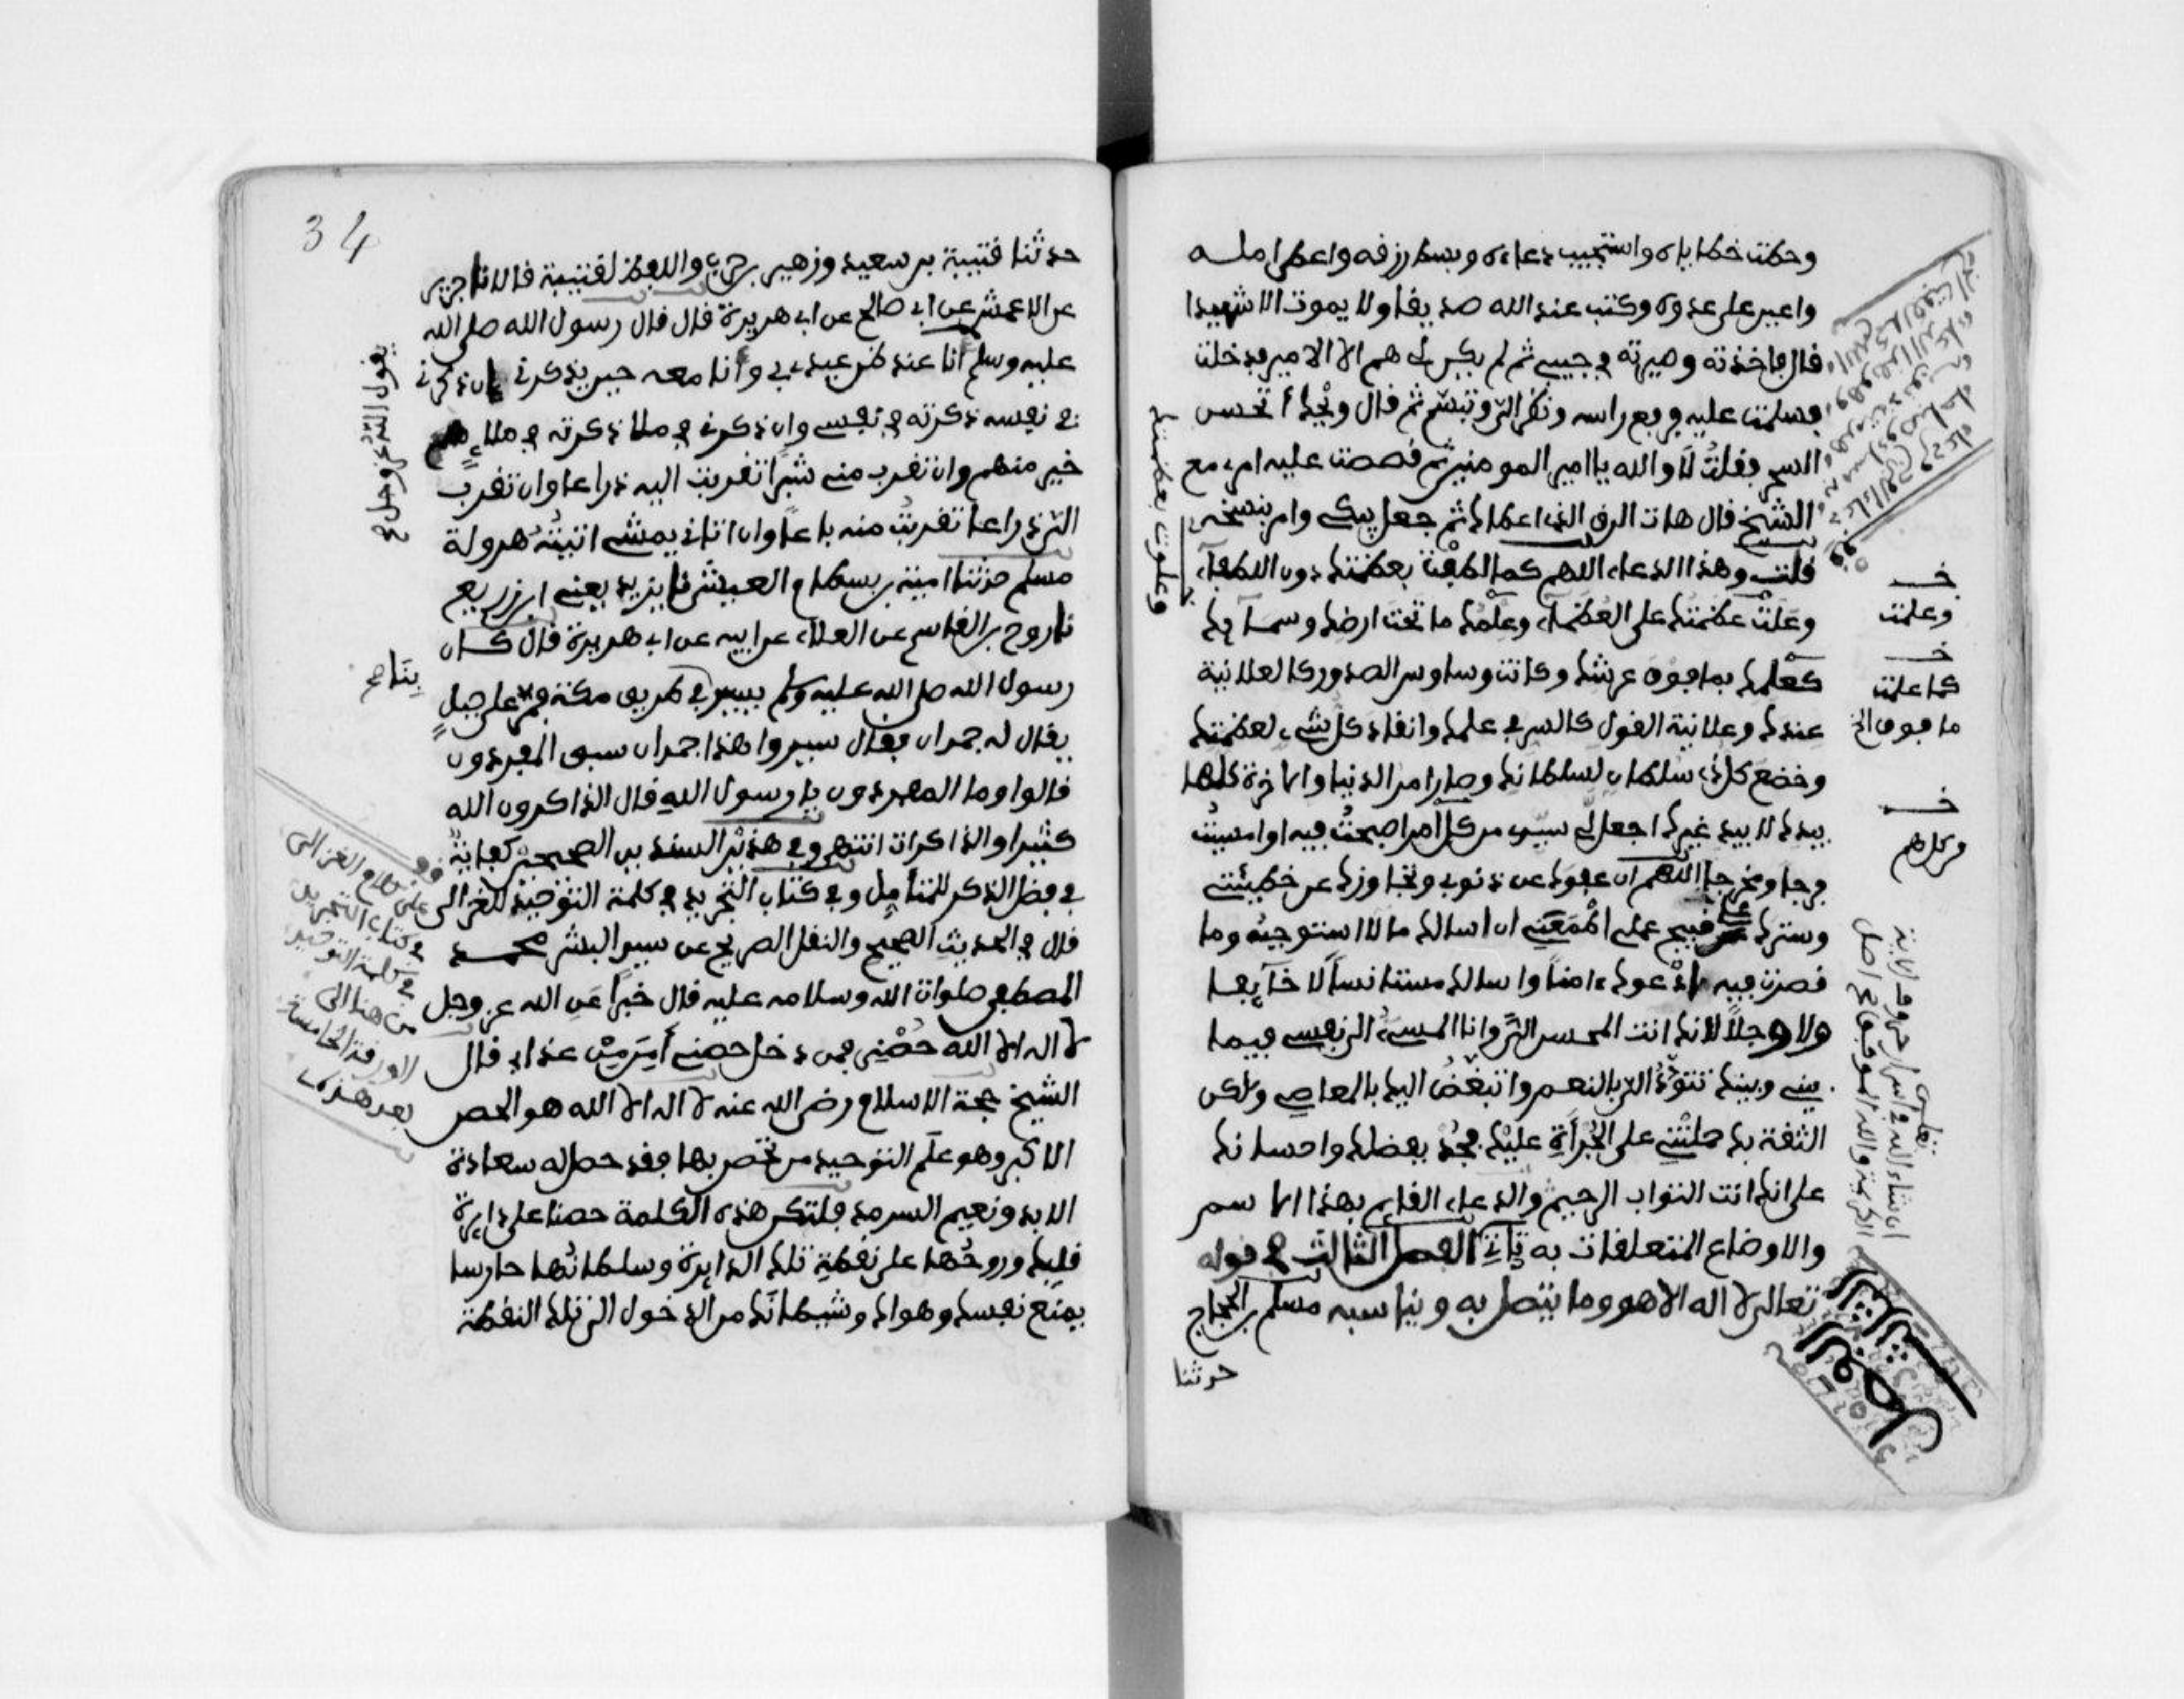 وحطت خطاياه واستجيب دعاءه وبسط رزقه واعطي امله
واعين على عدوه وكتب عند الله صديقا ولا يموت الا شهيدا
قال فاخذته وصيرته في جيبي ثم لم يكن لي هم الا الامير فدخلت
فسلمت عليه فرفع راسه ونظر الي وتبسم ثم قال ويحك أتحسن
السحر فقلت لا والله يا امير المومنين ثم قصصت عليه امري مع
الشيخ قال هات الرق الذي اعطاك ثم جعل يبكي وامر بنسخه
قلت وهذا الدعاء اللهم كما لطفت بعظمتك دون اللطفاء
وعلوت بعظمتك على العظماء وعلمك ما تحت ارضك وسمايك
كعلمك بما فوق عرشك وكانت وساوس الصدور كالعلانية
عندك وعلانية القول كالسر في علمك وانقاد كل شيء لعظمتك
وخضع كل ذي سلطان لسلطانك وصار امر الدنيا والاخرة كلها
بيدك لا بيد غيرك اجعل لي سيدي من كل امر اصبحت فيه او امسيت
فرجا ومخرجا اللهم ان عفوك عن ذنوبي وتجاوزك عن خطيئتي
وسترك على قبيح عملي اطمعني ان اسالك ما لا استوجبه وما
قصرت فيه ادعوك ءامنا واسالك مستانسا لا خايفا
ولا وجلا لانك انت المحسن الي وانا المسيء الى نفسي فيما
بيني وبينك تتودد الي بالنعم واتبغض اليك بالمعاصي ولكن
الثقة بك حملتني على الجرأة عليك فجد بفضلك واحسانك
علي انك انت التواب الرحيم والدعاء القايم بهذا الاسم
والاوضاع المتعلقات به ياتي الفصل الثالث في قوله
تعالى لا اله الا هو وما يتصل به ويناسبه مسلم بن الحجاج
حدثنا
خـ
وعلمت
خـ
كما علمت
ما فوق الخ
خـ
من كل هم
وعلوت بعظمتك
الفصل الثالث
34
حدثنا قتيبة بن سعيد وزهير بن حرب واللفظ لقتيبة قالا نا جرير
عن الاعمش عن ابي صالح عن ابي هريرة قال قال رسول الله صلى الله
عليه وسلم أنا عند ظن عبدي بي وأنا معه حين يذكرني إن ذكرني
في نفسه ذكرته في نفسي وان ذكرني في ملا ذكرته في ملاء هم
خير منهم وان تقرب مني شبرا تقربت اليه ذراعا وان تقرب
الي ذراعا تقربت منه باعا وان اتاني يمشي اتيته هرولة
مسلم حدثنا امية بن بسطام العيشي نا يزيد يعني ابن زريع
نا روح بن القاسم عن العلاء عن ابيه عن ابي هريرة قال كان
رسول الله صلى الله عليه وسلم يسير في طريق مكة فمر على جبل
يقال له جمدان فقال سيروا هذا جمدان سبق المفردون
قالوا وما المفردون يا رسول الله قال الذاكرون الله
كثيرا والذاكرات انتهى وفي هذين السندين الصحيحين كفاية
في فضل الذكر للمتأمل وفي كتاب التجريد في كلمة التوحيد للغزالي
قال في الحديث الصحيح والنقل الصريح عن سيد البشر محمد
المصطفى صلوات الله وسلامه عليه قال خبرا عن الله عز وجل
لا اله الا الله حصني فمن دخل حصني أمن من عذابي قال
الشيخ حجة الاسلام رضي الله عنه لا اله الا الله هو الحصن
الاكبر وهو علم التوحيد من تحصن بها فقد حصل له سعادة
الابد ونعيم السرمد فلتكن هذه الكلمة حصنا على دايرة
قلبك وروحها على نقطة تلك الدايرة وسلطانها حارسا
يمنع نفسك وهواك وشيطانك من الدخول الى تلك النقطة
يقول الله عز وجل صح
بنا صح
قف على كلام الغزالي
في كتاب التجريد
في كلمة التوحيد
من هنا الى
الورقة الخامسة
بعد هذه